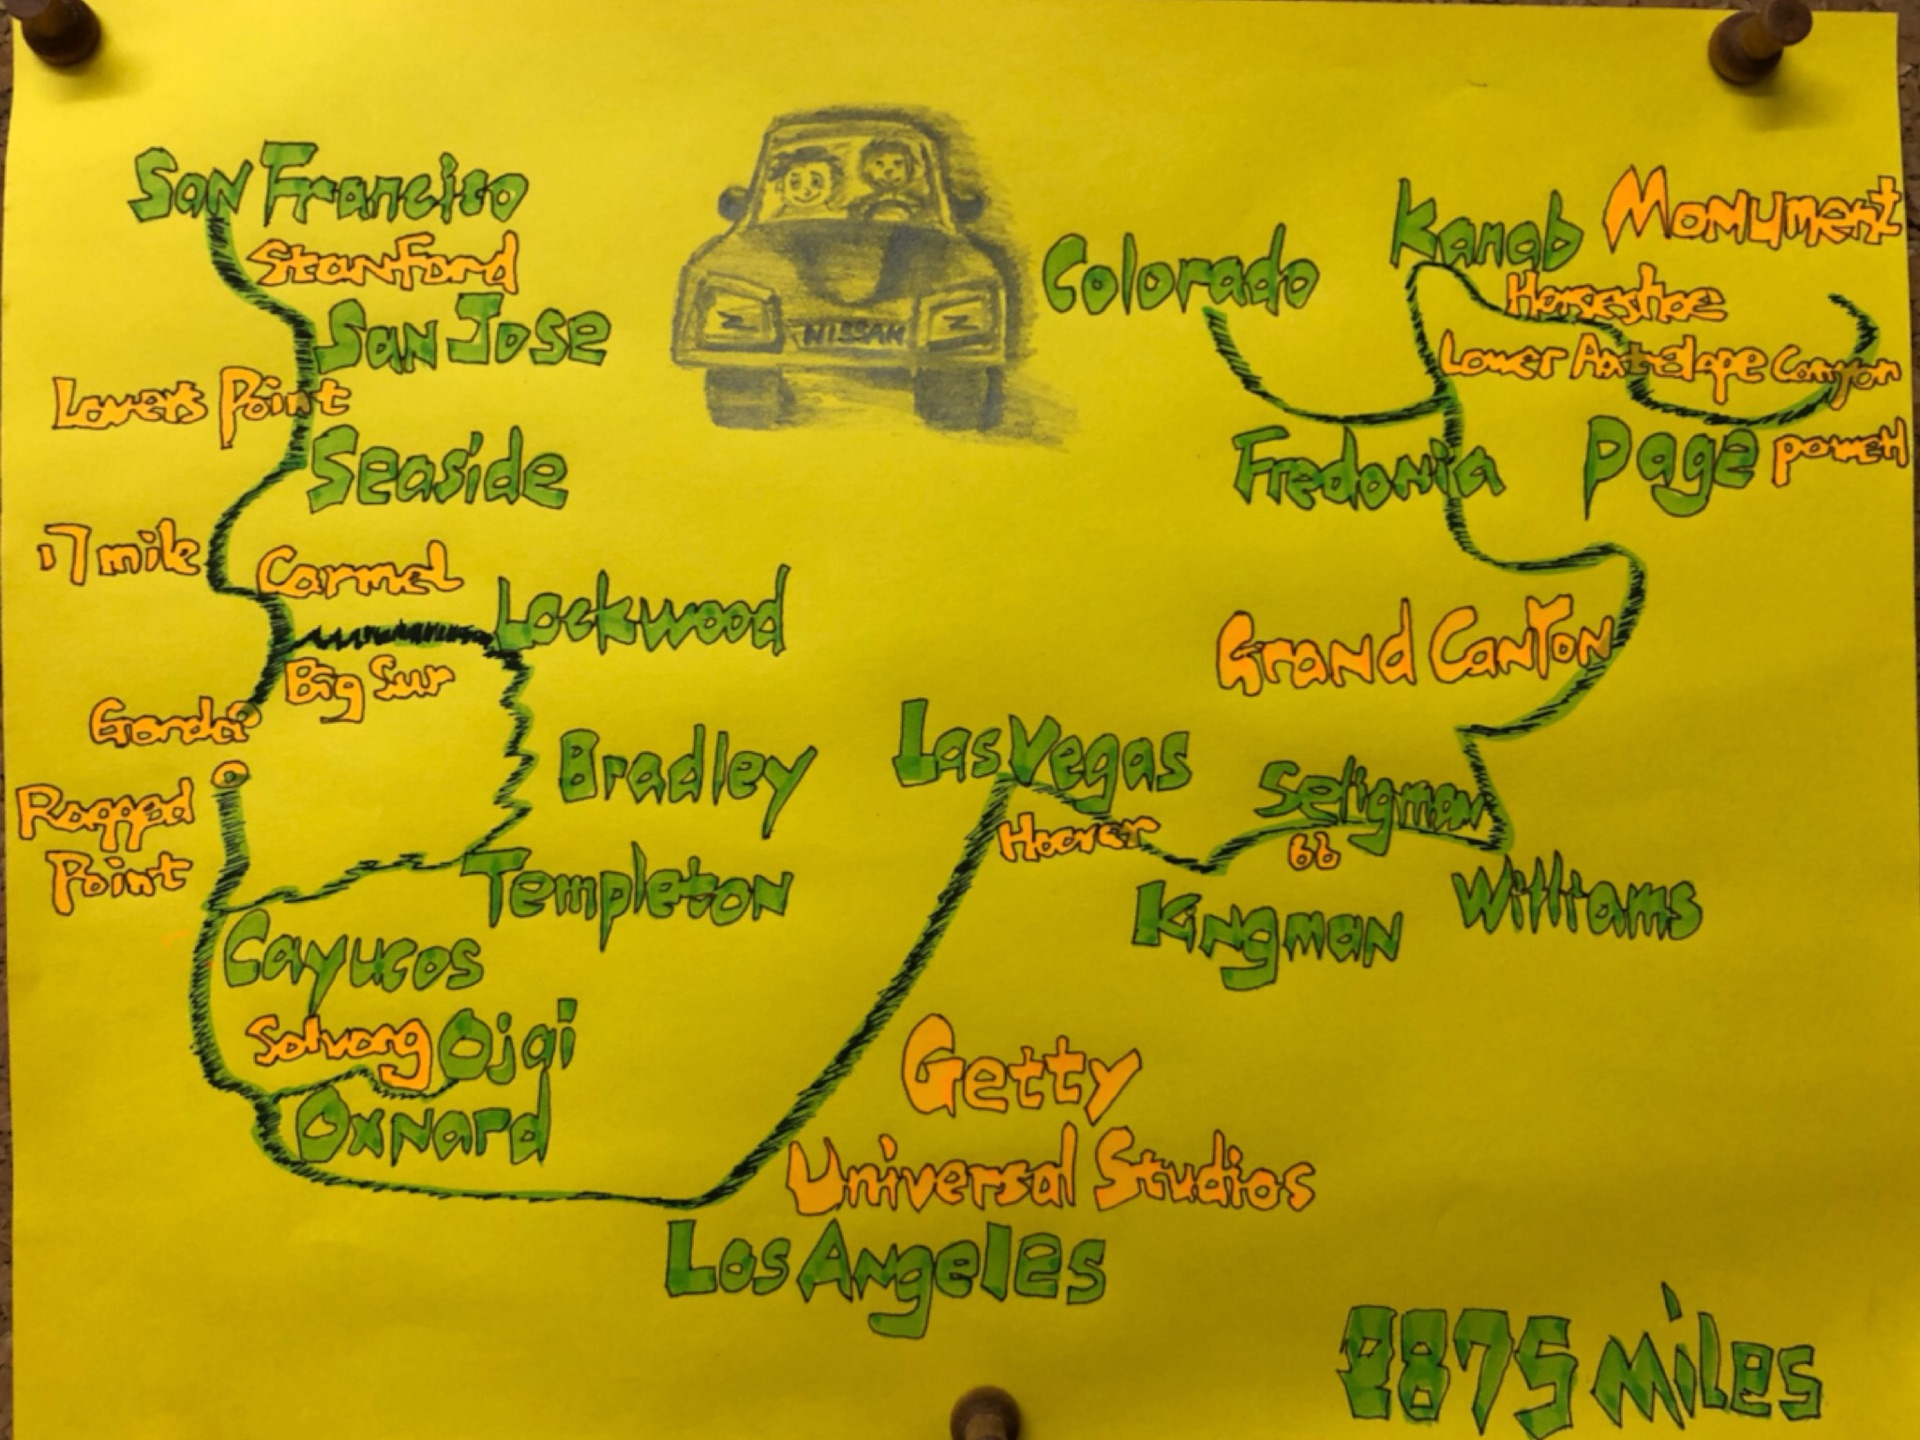 San Francisco
Stanford
San Jose
Lovers Point
Seaside
17 mile
Carmel
Lockwood
Big Sur
Gorda
Ragged
Point
Bradley
Templeton
Cayucos
Solvang
Ojai
Oxnard
Los Angeles
Getty
Universal Studios
Las Vegas
Hoover
Kingman
Seligman
66
Williams
Grand Canyon
Fredonia
Colorado
Kanab
Monument
Horseshoe
Lower Antelope Canyon
Page
Powell
NISSAN
2875 miles